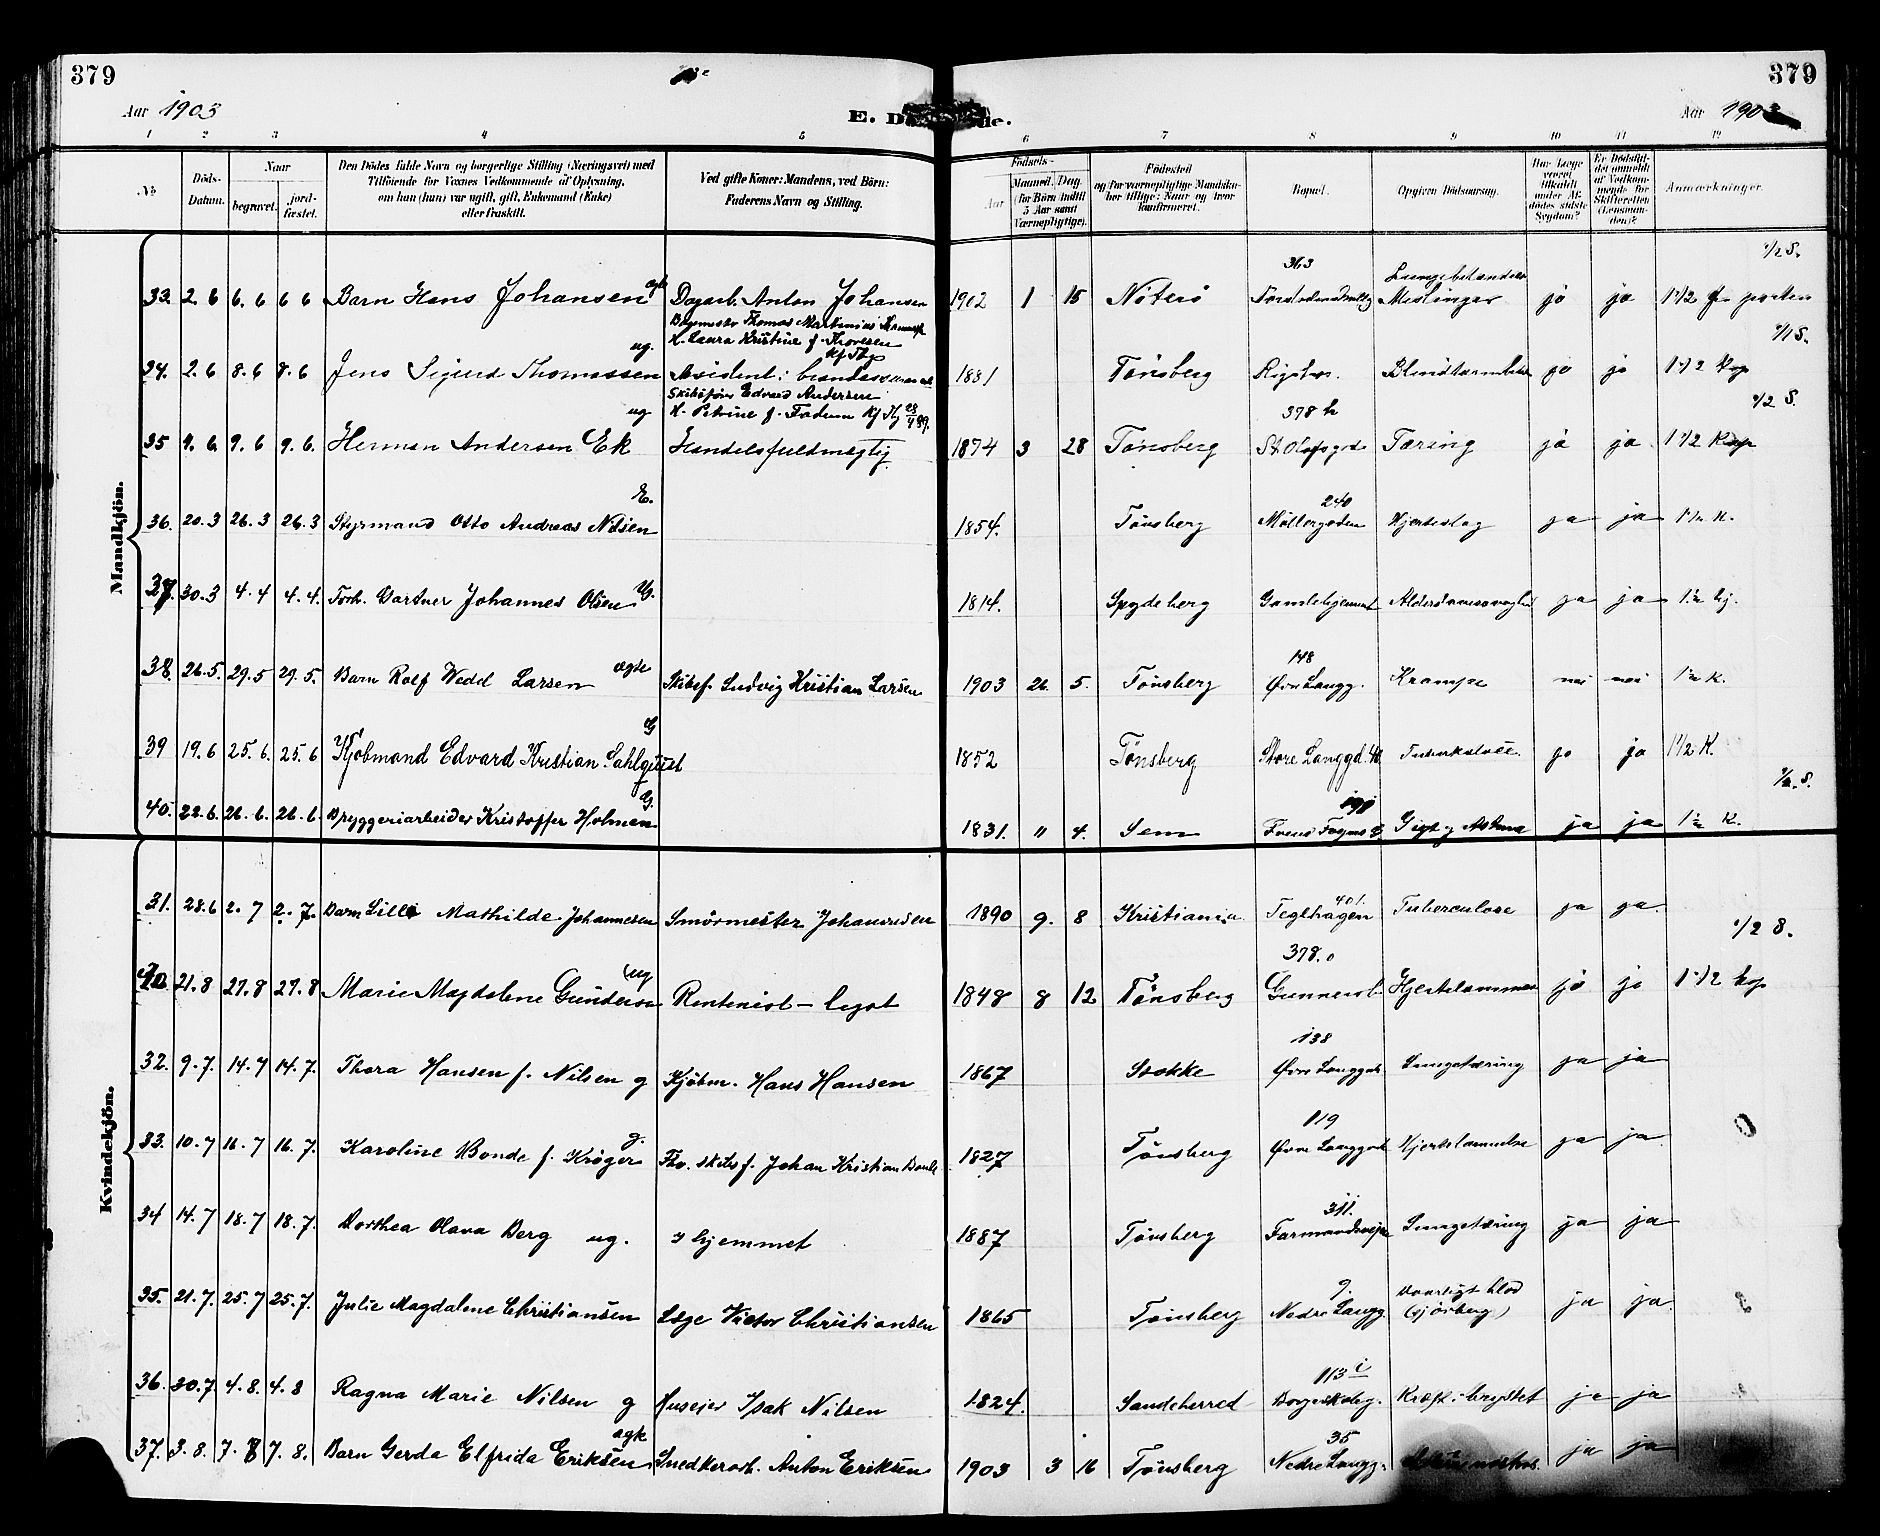 379
379
Aar 1903
E. Döde.
Aar 1903
1 2 3 4 5 6 7 8 9 10 11 12
No
Döds-Datum.
Naar
begravet.
jordfæstet.
Den Dödes fulde Navn og borgerlige Stilling (Næringsvei) med Tilföiende for Voxnes Vedkommende af Oplysning, om han (hun) var ugift, gift, Enkemand (Enke) eller fraskilt.
Ved gifte Koner: Mandens, ved Börn: Faderens Navn og Stilling.
Födsels-
Aar
Maaned. Dag.
(for Börn indtil 5 Aar samt Værnepligtige).
Födested og for værnepligtige Mandskaber tillige: Naar og hvor konfirmeret.
Bopæl.
Opgiven Dödsaarsag.
Har Læge været tilkaldt under Afdödes sidste Sygdom?
Er Dödsfaldet anmeldt af Vedkommende for Skifteretten (Lensmanden)?
Anmærkninger.
Mandkjön.
33. 2.6 6.6 6 6 Barn Hans Johansen ægte Dagarb. Anton Johansen 1902 1 15 Nöterö 363 Lungebetændelse Meslinger ja ja 1 1/2 1/2 S.
Thomas Martinius
H. Laura Kristine f. Thoresen
34. 2.6 8.6 8.6 Jens Sigurd Thomassen ug. Assistent i 1881 Tønsberg ja ja 1 1/2 Kop 1/1 S.
Skibsförer Edvard Andersen
H. Petrine f.
35 9.6 9.6 9.6. Herman Andersen Ek ug Handelsfuldmegtig 1874 3 28 Tønsberg 378 h St Olafsgd Tæring ja ja 1 1/2 Kop 1/2 S.
36. 20.3 26.3 26.3 Styrmand Otto Andreas Nilsen E. 1854. Tønsberg 240 Møllergaden Hjerteslag ja ja 1 1/2 K.
37. 30.3 4.4 4.4. Forh. Gartner Johannes Olsen G. 1814. Spydeberg Gamlehjemmet ja ja
38. 26.5. 29.5 29.5. Barn Rolf Wedd Larsen ægte Skibsf. Ludvig Kristian Larsen 1903 26. 5. Tønsberg 148 Øvre Langg. Krampe nei nei 1 1/2 K.
39 19.6 25.6. 25.6 Kjöbmand Edvard Kristian Sahlquist G 1852 Tønsberg Store Langgd. 40 Tuberkulose ja ja 1 1/2 K.
40. 22.6. 26.6. 26.6. Bryggeriarbeider Kristoffer Holmen G. 1831. " 4. Sem Gigt og Astma ja ja 1 1/2 K. 1/2 S.
Kvindekjön.
31. 28.6 2.7 2.7. Barn Lilli Mathilde Johannesen Smörmester Johannesen 1890 9. 8 Kristiania 401. Teglhagen Tuberculose ja ja.
21.8 27.8 27.8 Marie Magdalene Gundersen ug Rentenist - legat 1848 8 12 Tønsberg 378.o Gunnersb. Hjertelammelse ja ja 1 1/2 Kop 1/2 S.
32. 9.7. 14.7 14.7. Thora Hansen f. Nilsen g Kjöbm. Hans Hansen 1867 Stokke 138 Øvre Langgade Lungetæring ja ja
33. 10.7 16.7 16.7. Karoline Bonde f. Krøger g. Fhv. skibsf. Johan Kristian Bonde 1827 Tønsberg 119 Øvre Langgade Hjertelammelse ja ja.
34 14.7 18.7 18.7. Dorthea Olava Berg ug. i hjemmet 1887 Tønsberg 311. Farmandsveien Lungetæring ja ja
35. 21.7. 25.7 25.7. Julie Magdalene Christiansen Læge Victor Christiansen 1865 Tønsberg 9. Nedre Langg. Daarligt blod (Sjöerberg) ja ja.
36. 30.7. 4.8. 4.8 Ragna Marie Nilsen g Huseier Isak Nilsen 1824. Sandeherred 113 i Borgeskoleg. Kræft i brystet ja ja
37. 3.8. 7.8 7.8. Barn Gerda Elfrida Eriksen ægte Snedkerarb. Anton Eriksen 1903 3 16 Tønsberg 35 Nedre Langg. ja ja